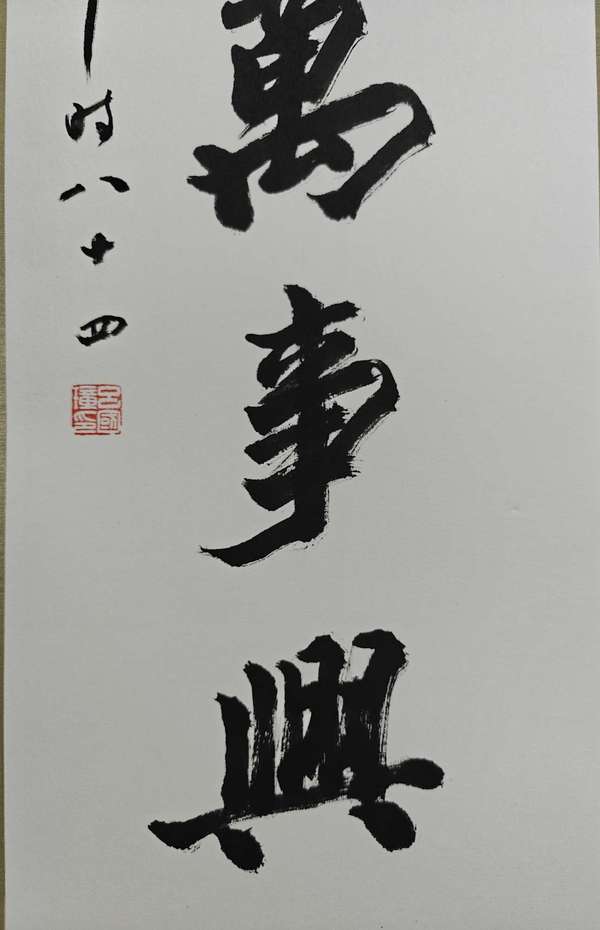 萬事興
时八十四